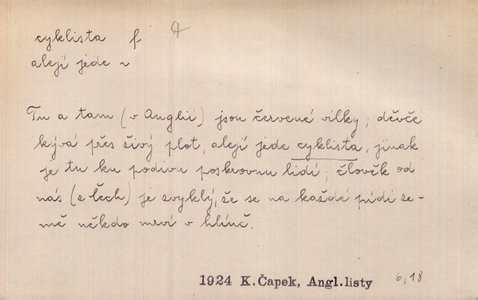 cyklista f 4
alejí jede ~
Tu a tam (v Anglii) jsou červené vilky; děvče
kývá přes živý plot, alejí jede cyklista, jinak
je tu ku podivu poskrovnu lidí; člověk od
nás (z Čech) je zvyklý, že se na každé pídi ze-
mě někdo mrví v hlíně.
1924 K.Čapek, Angl.listy 6,18